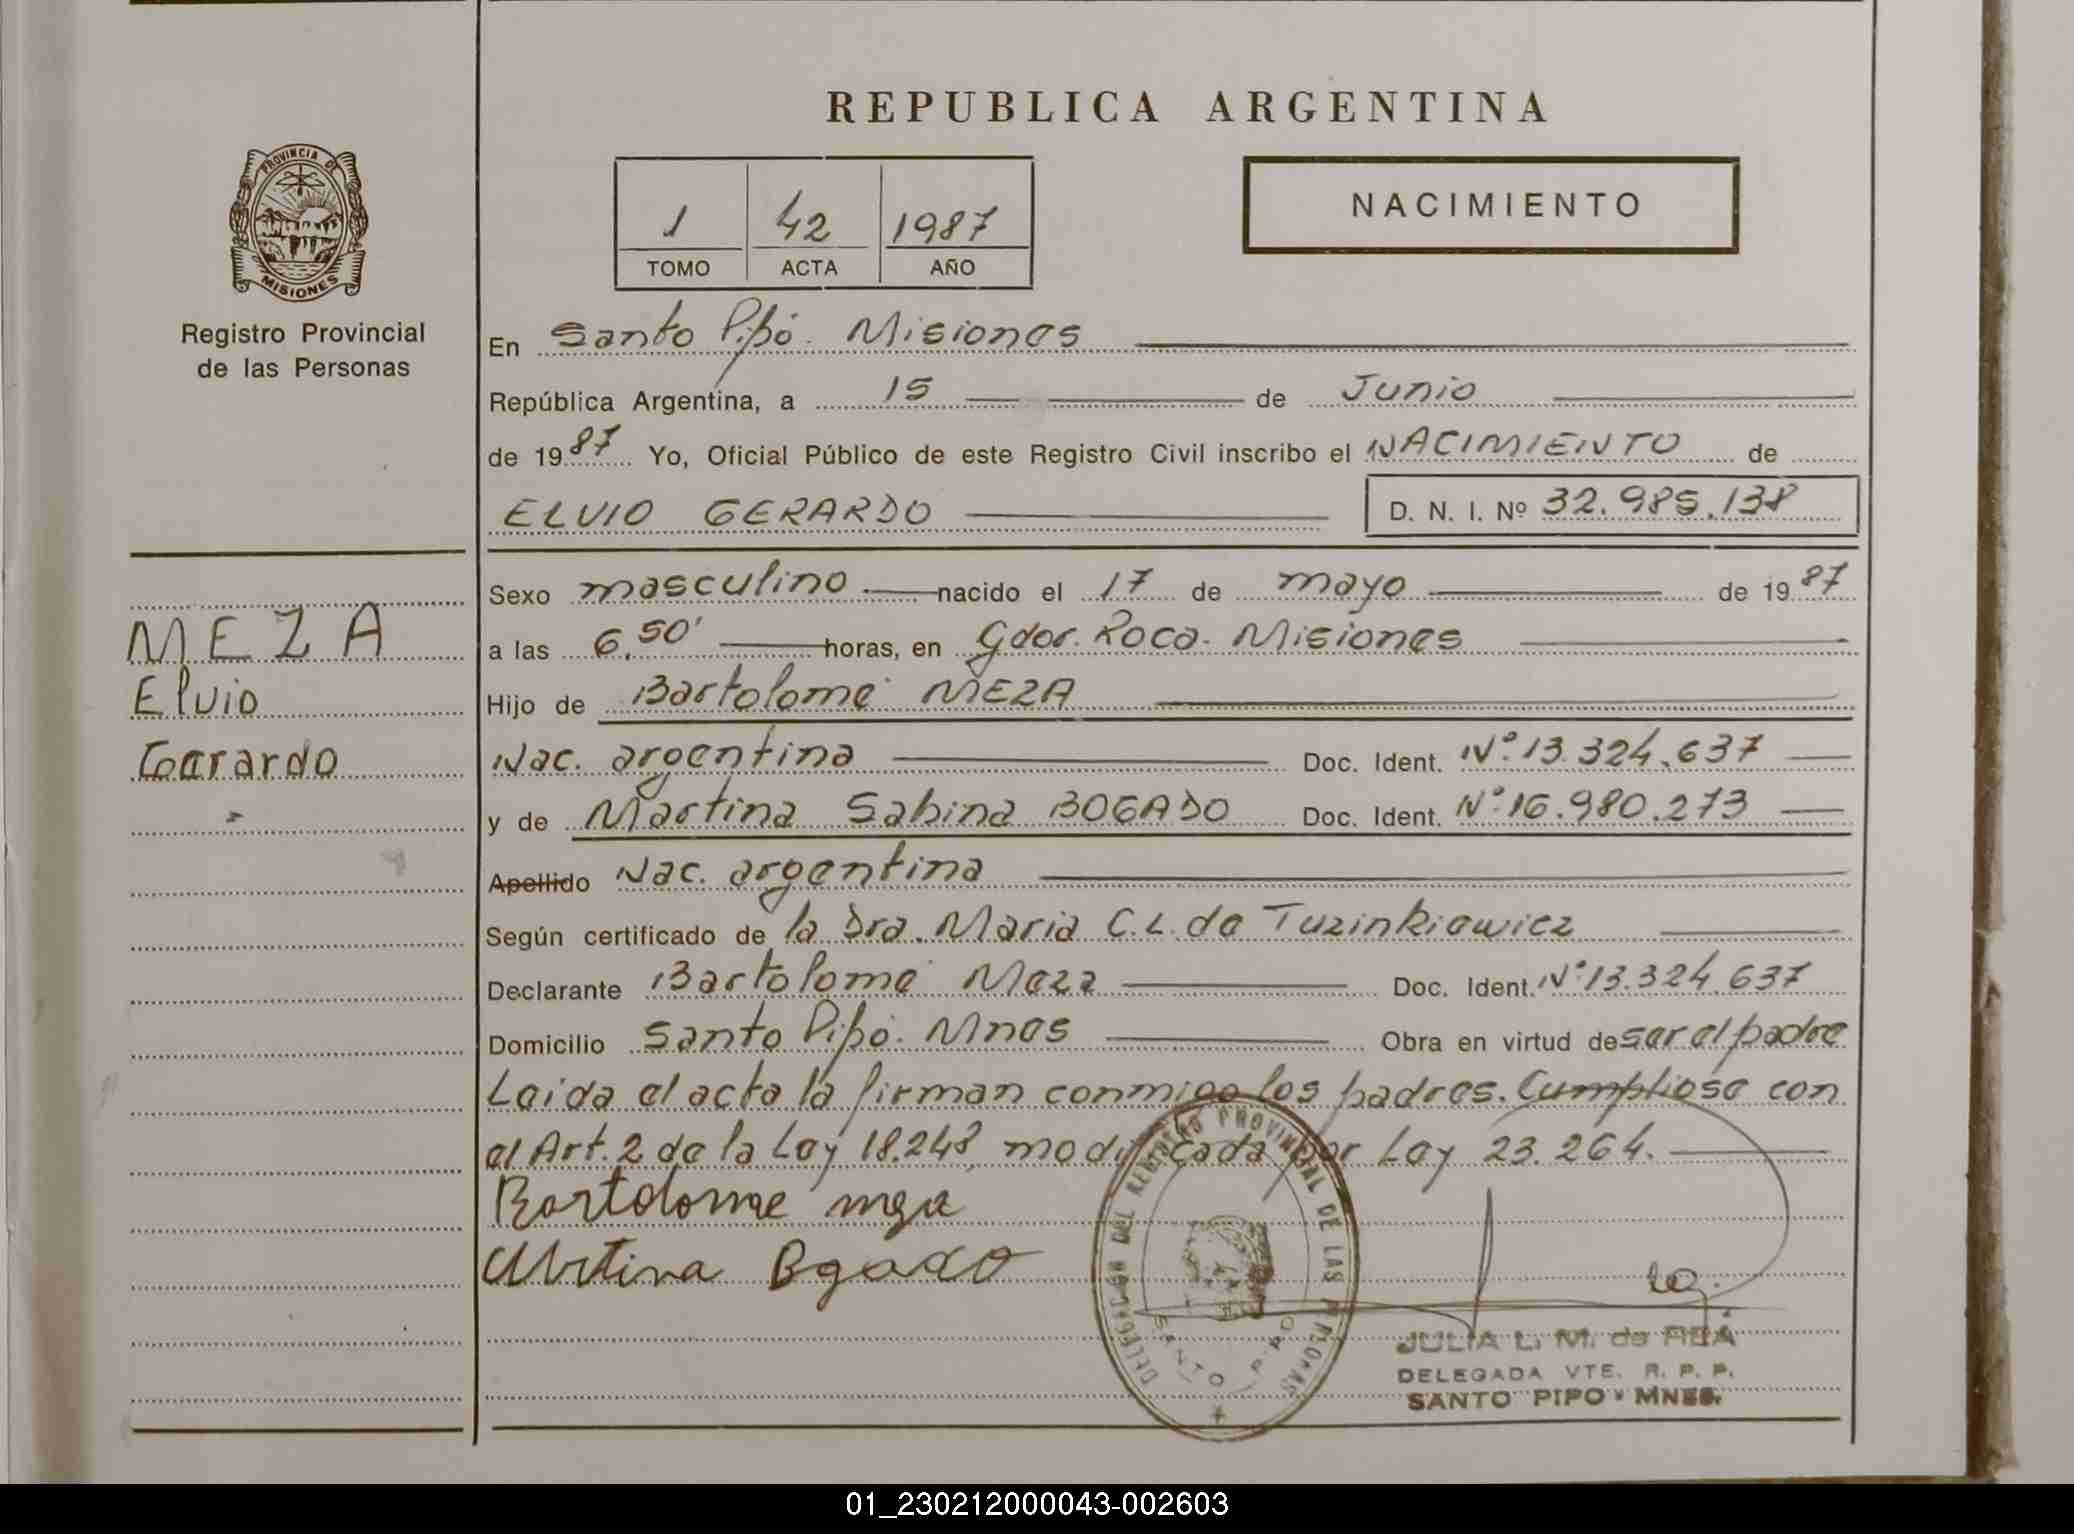 REPUBLICA ARGENTINA
PROVINCIA DE
MISIONES
Registro Provincial
de las Personas
1 42 1987
TOMO ACTA AÑO
NACIMIENTO
En Santo Pipó. Misiones
República Argentina, a 15 de Junio
de 1987 Yo, Oficial Público de este Registro Civil inscribo el NACIMIENTO de
ELVIO GERARDO D. N. I. Nº 32.985.138
MEZA
Elvio
Gerardo
Sexo masculino nacido el 17 de mayo de 1987
a las 6,50' horas, en Gdor. Roca. Misiones
Hijo de Bartolomé MEZA
Nac. argentina Doc. Ident. Nº 13.324.637
y de Martina Sabina BOGADO Doc. Ident. Nº 16.980.273
Apellido Nac. argentina
Según certificado de la Dra. Maria C.L. de Tuzinkiewicz
Declarante Bartolomé Meza Doc. Ident. Nº 13.324.637
Domicilio Santo Pipó. Mnes Obra en virtud de ser el padre
Leida el acta la firman conmigo los padres. Cumpliose con
el Art. 2 de la Ley 18.248 modificada por Ley 23.264.
Bartolome meza
Martina Bogado
DELEGACIÓN DEL REGISTRO PROVINCIAL DE LAS PERSONAS
SANTO PIPO
JULIA L. M. de REA
DELEGADA VTE. R. P. P.
SANTO PIPO - MNES.
01_230212000043-002603